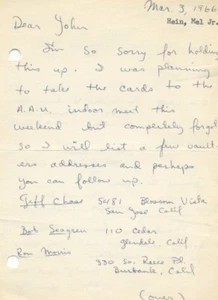 Mar. 3, 1966
Hein, Mel Jr.
Dear John
I'm so sorry for holding
this up. I was planning
to take the cards to the
A.A.U. indoor meet this
weekend but completely forgot
so I will list a few vault
ers addresses and perhaps
you can follow up.
Jeff Chase 5481 Blossom Vista
San Jose Calif
Bob Seagren 110 Cedar
Glendale, Calif
Ron Morris
330 So. Reese Pl.
Burbank, Calif
(over)